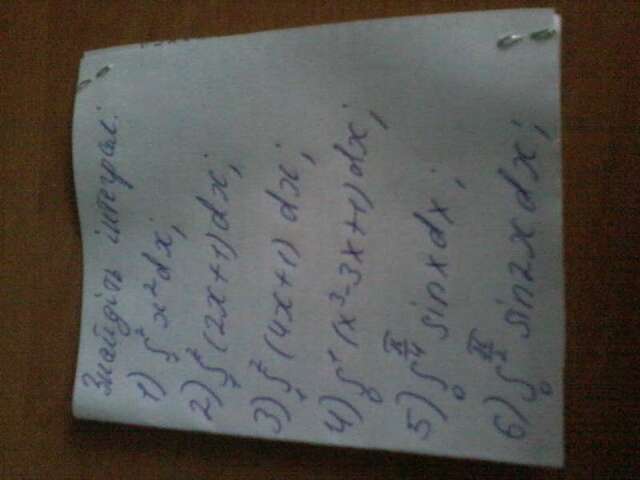 Знайдіть інтеграл:
1) ∫₁² x² dx;
2) ∫₁² (2x+1) dx;
3) ∫₁² (4x+1) dx;
4) ∫₀¹ (x³-3x+1) dx;
5) ∫₀^(π/4) sin x dx;
6) ∫₀^(π/2) sin 2x dx;